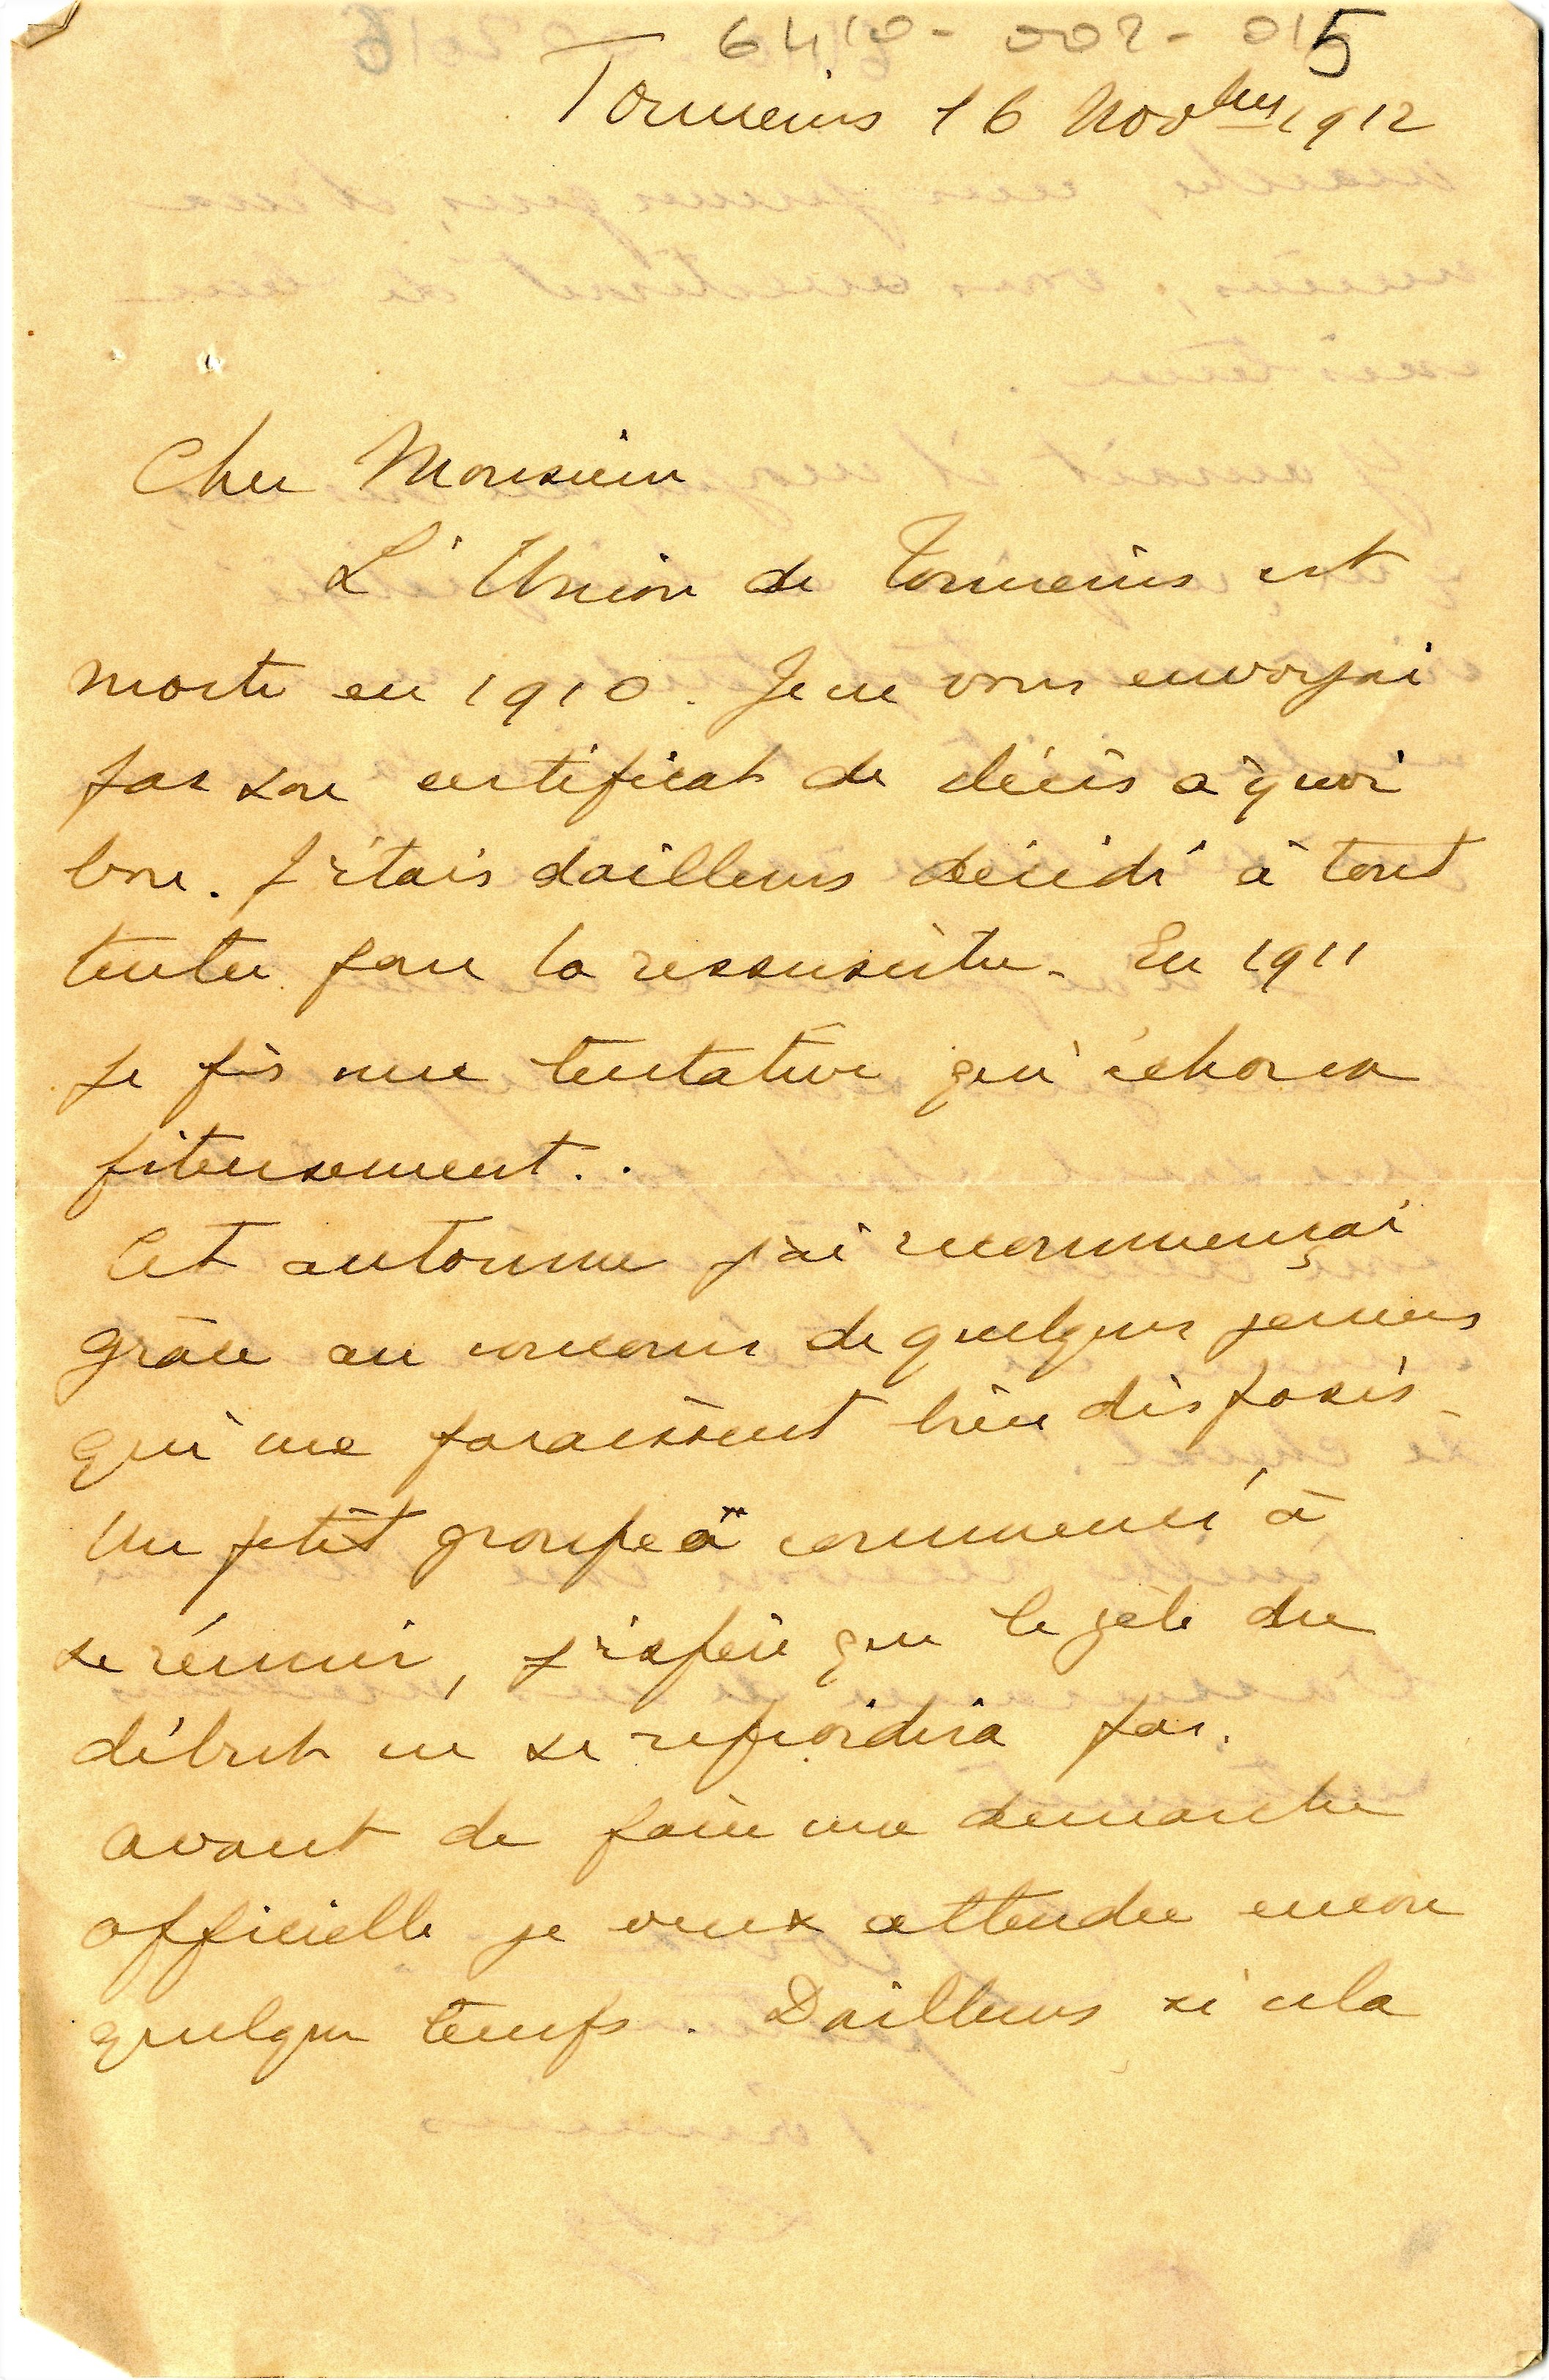 6410-002-015
Tonneins 16 Novbre 1912
Cher Monsieur
L'Union de Tonneins est
morte en 1910. Je ne vous envoyai
pas son certificat de décès à quoi
bon. J'étais dailleurs décidé à tout
tenter pour la ressusciter. En 1911
je fis une tentative qui échoua
piteusement..
Cet automne j'ai recommençai
grâce au concours de quelques jeunes
qui me paraissent bien disposés.
Un petit groupe a commencé à
se réunir, j'espère que le zèle du
début ne se refroidira pas.
avant de faire une demarche
officielle je veux attendre encore
quelque temps. Dailleurs si cela